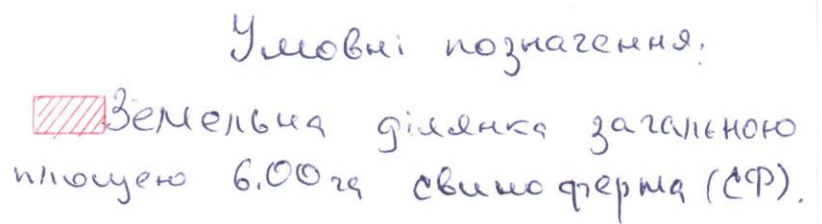 Умовні позначення.
Земельна ділянка загальною
площею 6.00 га свиноферма (СФ).